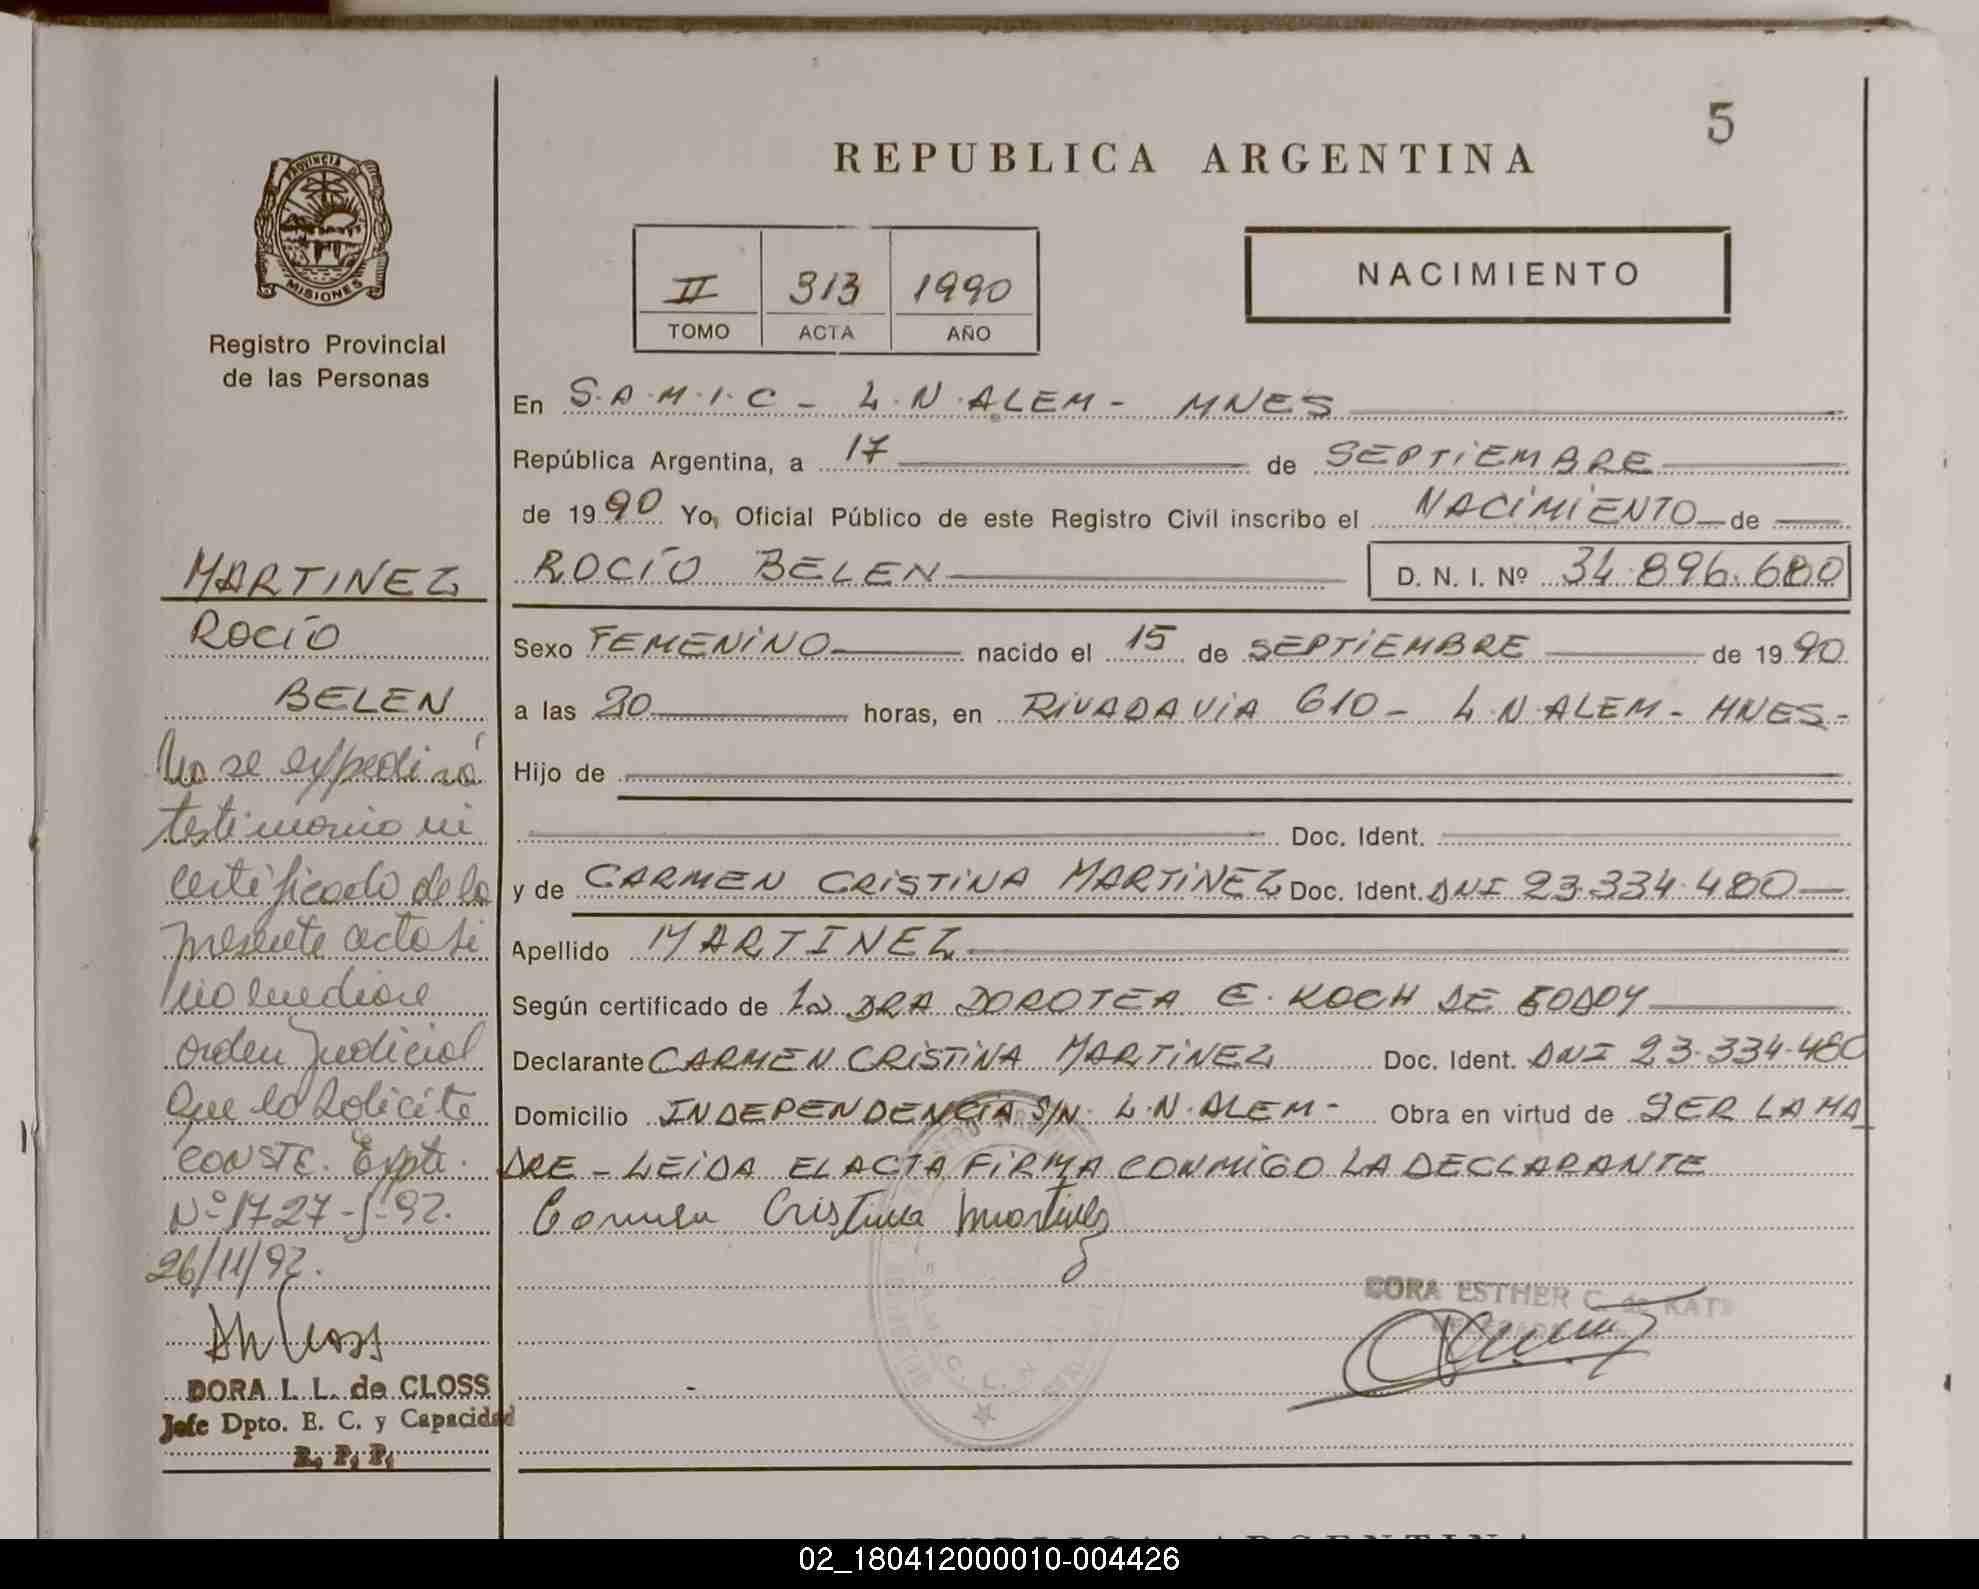 5
REPUBLICA ARGENTINA
PROVINCIA DE
MISIONES
Registro Provincial
de las Personas
II 313 1990
TOMO ACTA AÑO
NACIMIENTO
En S.A.M.I.C - L.N.ALEM - MNES
República Argentina, a 17 de SEPTIEMBRE
de 1990 Yo, Oficial Público de este Registro Civil inscribo el NACIMIENTO de
ROCÍO BELEN D. N. I. Nº 34.896.680
Sexo FEMENINO nacido el 15 de SEPTIEMBRE de 1990
a las 20 horas, en RIVADAVIA 610 - L.N.ALEM - MNES -
Hijo de
Doc. Ident.
y de CARMEN CRISTINA MARTINEZ Doc. Ident. DNI 23.334.480
Apellido MARTINEZ
Según certificado de La DRA DOROTEA E. KOCH DE GODOY
Declarante CARMEN CRISTINA MARTINEZ Doc. Ident. DNI 23.334.480
Domicilio INDEPENDENCIA S/N. L.N.ALEM - Obra en virtud de SER LA MA
DRE - LEIDA EL ACTA FIRMA CONMIGO LA DECLARANTE
Carmen Cristina Martinez
DORA ESTHER C. de KATZ
MARTINEZ
ROCÍO
BELEN
No se expedirá
testimonio ni
certificado de la
presente acta si
no mediare
orden Judicial
que lo solicite
CONSTE. Expte.
Nº 1727-J-92.
26/11/92.
DORA I. L. de CLOSS
Jefe Dpto. E. C. y Capacidad
R. P. P.
REPUBLICA ARGENTINA
02_180412000010-004426